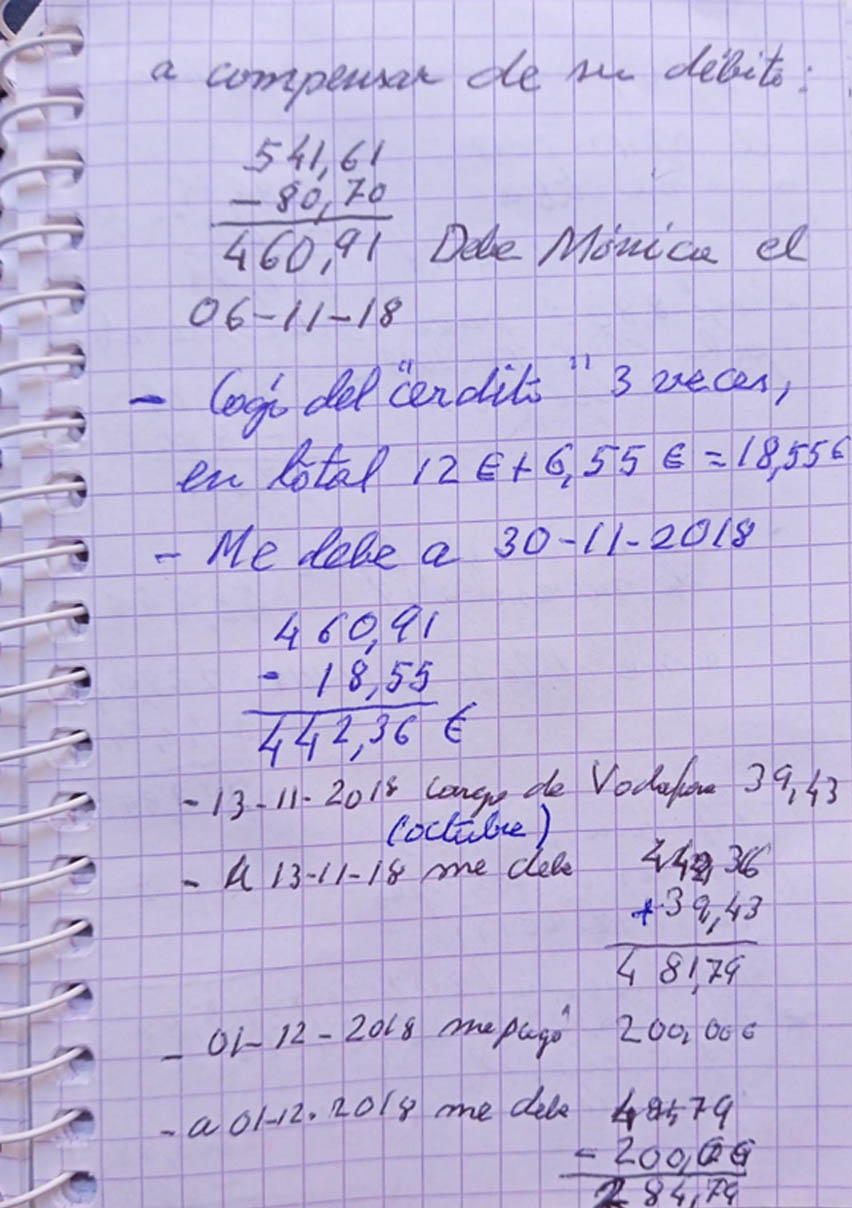 a compensar de su débito:
541,61
-80,70
460,91 Debe Mónica el
06-11-18
- Cogí del "cerdito" 3 veces,
en total 12 € + 6,55 € = 18,55 €
- Me debe a 30-11-2018
460,91
- 18,55
442,36 €
- 13-11-2018 cargo de Vodafone 39,43
(octubre)
- A 13-11-18 me debe 442,36
+39,43
481,79
- 01-12-2018 me pagó 200,00€
- a 01-12-2018 me debe 79
- 200,00
284,79